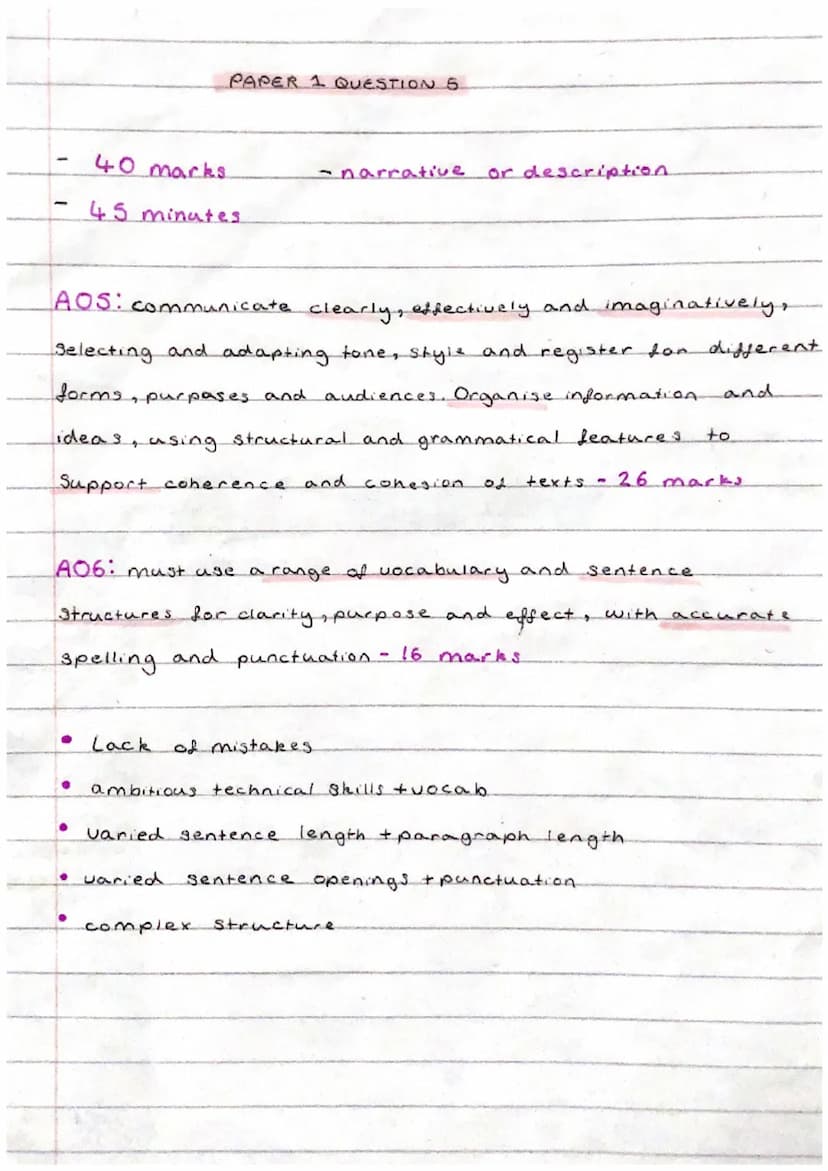 PAPER 1 QUESTION 5
- 40 marks - narrative or description
- 45 minutes
AO5: communicate clearly, effectively and imaginatively,
selecting and adapting tone, style and register for different
forms, purpases and audiences. Organise information and
ideas, using structural and grammatical features to
Support coherence and cohesion of texts - 26 marks
AO6: must use a range of vocabulary and sentence
structures for clarity, purpose and effect, with accurate
spelling and punctuation - 16 marks
• Lack of mistakes
• ambitious technical skills + vocab
• varied sentence length + paragraph length
• varied sentence openings + punctuation
• complex structure